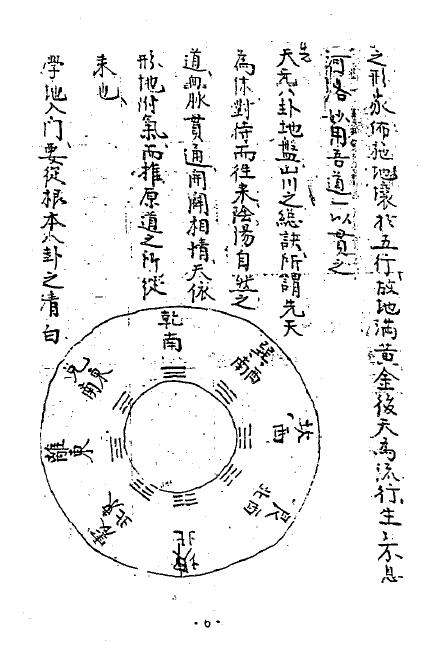 之形家佈施地懷於五行放地滿黃金後天為流行生生不息
河洛妙用吾道一以貫之
先天元八卦地盤山川之總訣所謂先天
為体對待而往來陰陽自然之
道血脉貫通開闢相情天依
形地附氣而推原道之所從
来也
學地入门要從根本八卦之清白
乾南
巽西南
坎西
艮西北
坤北
震東北
離東
兌東南
·6·